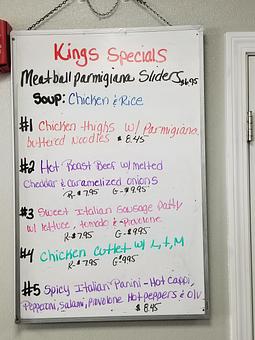 Kings Specials
Meatball parmigiana Sliders $6.95
Soup: Chicken & Rice
#1 Chicken thighs w/ Parmigiana
buttered Noodles $8.45
#2 Hot Roast Beef w/ melted
Cheddar & caramelized onions
R-$7.95 G-$9.95
#3 Sweet Italian Sausage Patty
w/ lettuce, tomato & Provolone
R-$7.95 G-$9.95
#4 Chicken Cutlet w/ L, t, M
R-$7.95 G-$9.95
#5 Spicy Italian Panini - Hot Cappi,
Pepperoni, Salami, Provolone Hot peppers & O/V
$8.45